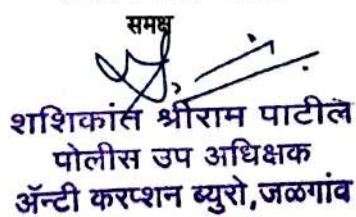 समक्ष
शशिकांत श्रीराम पाटील
पोलीस उप अधिक्षक
ॲन्टी करप्शन ब्युरो,जळगांव